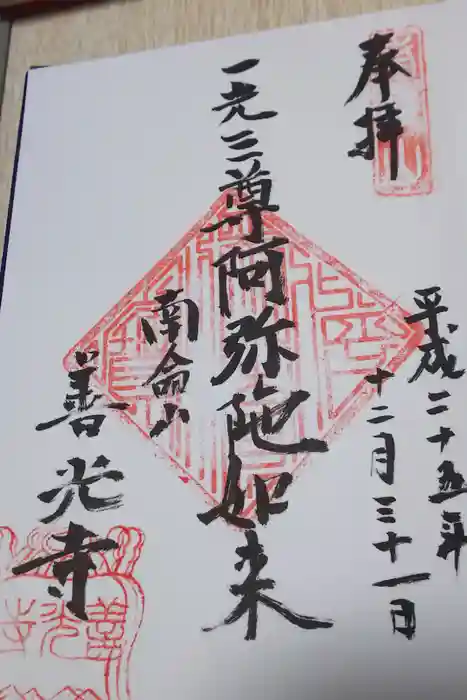 奉拝
平成二十五年
十二月三十一日
一光三尊阿弥陀如来
南命山
善光寺